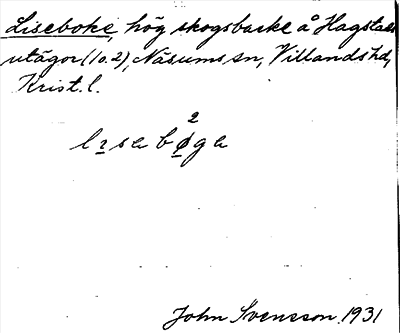 Liseboke, hög skogsbacke å Hagstads
utägor (1 o. 2), Näsums sn, Villands hd,
Krist. l.
2
lisebøga
John Svensson 1931